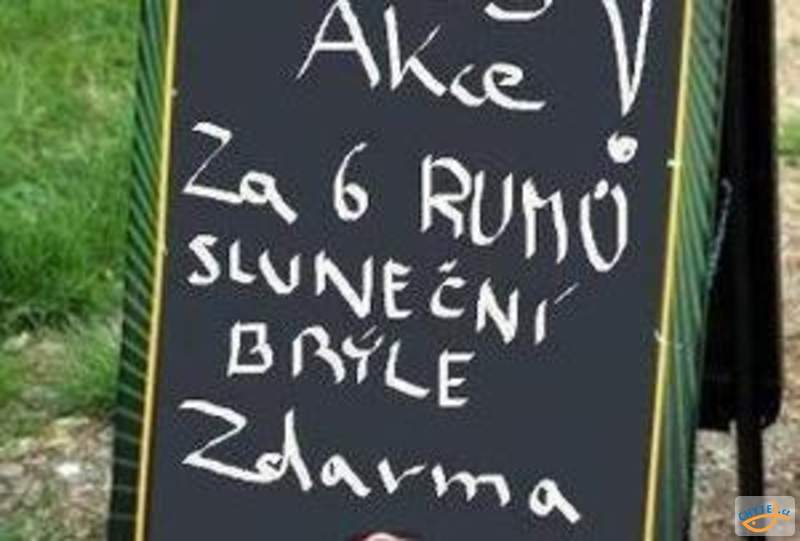 Akce !
Za 6 RUMŮ
SLUNEČNÍ
BRÝLE
Zdarma